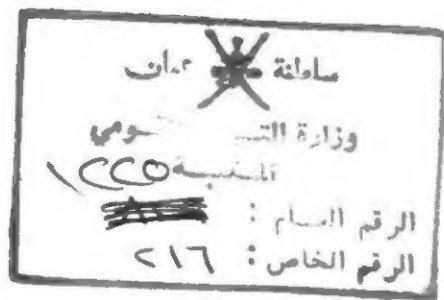 سلطنة عمان
وزارة التـ ـومي
المكتبة ١٢٢٥
الرقم العام :
الرقم الخاص : ٢١٦